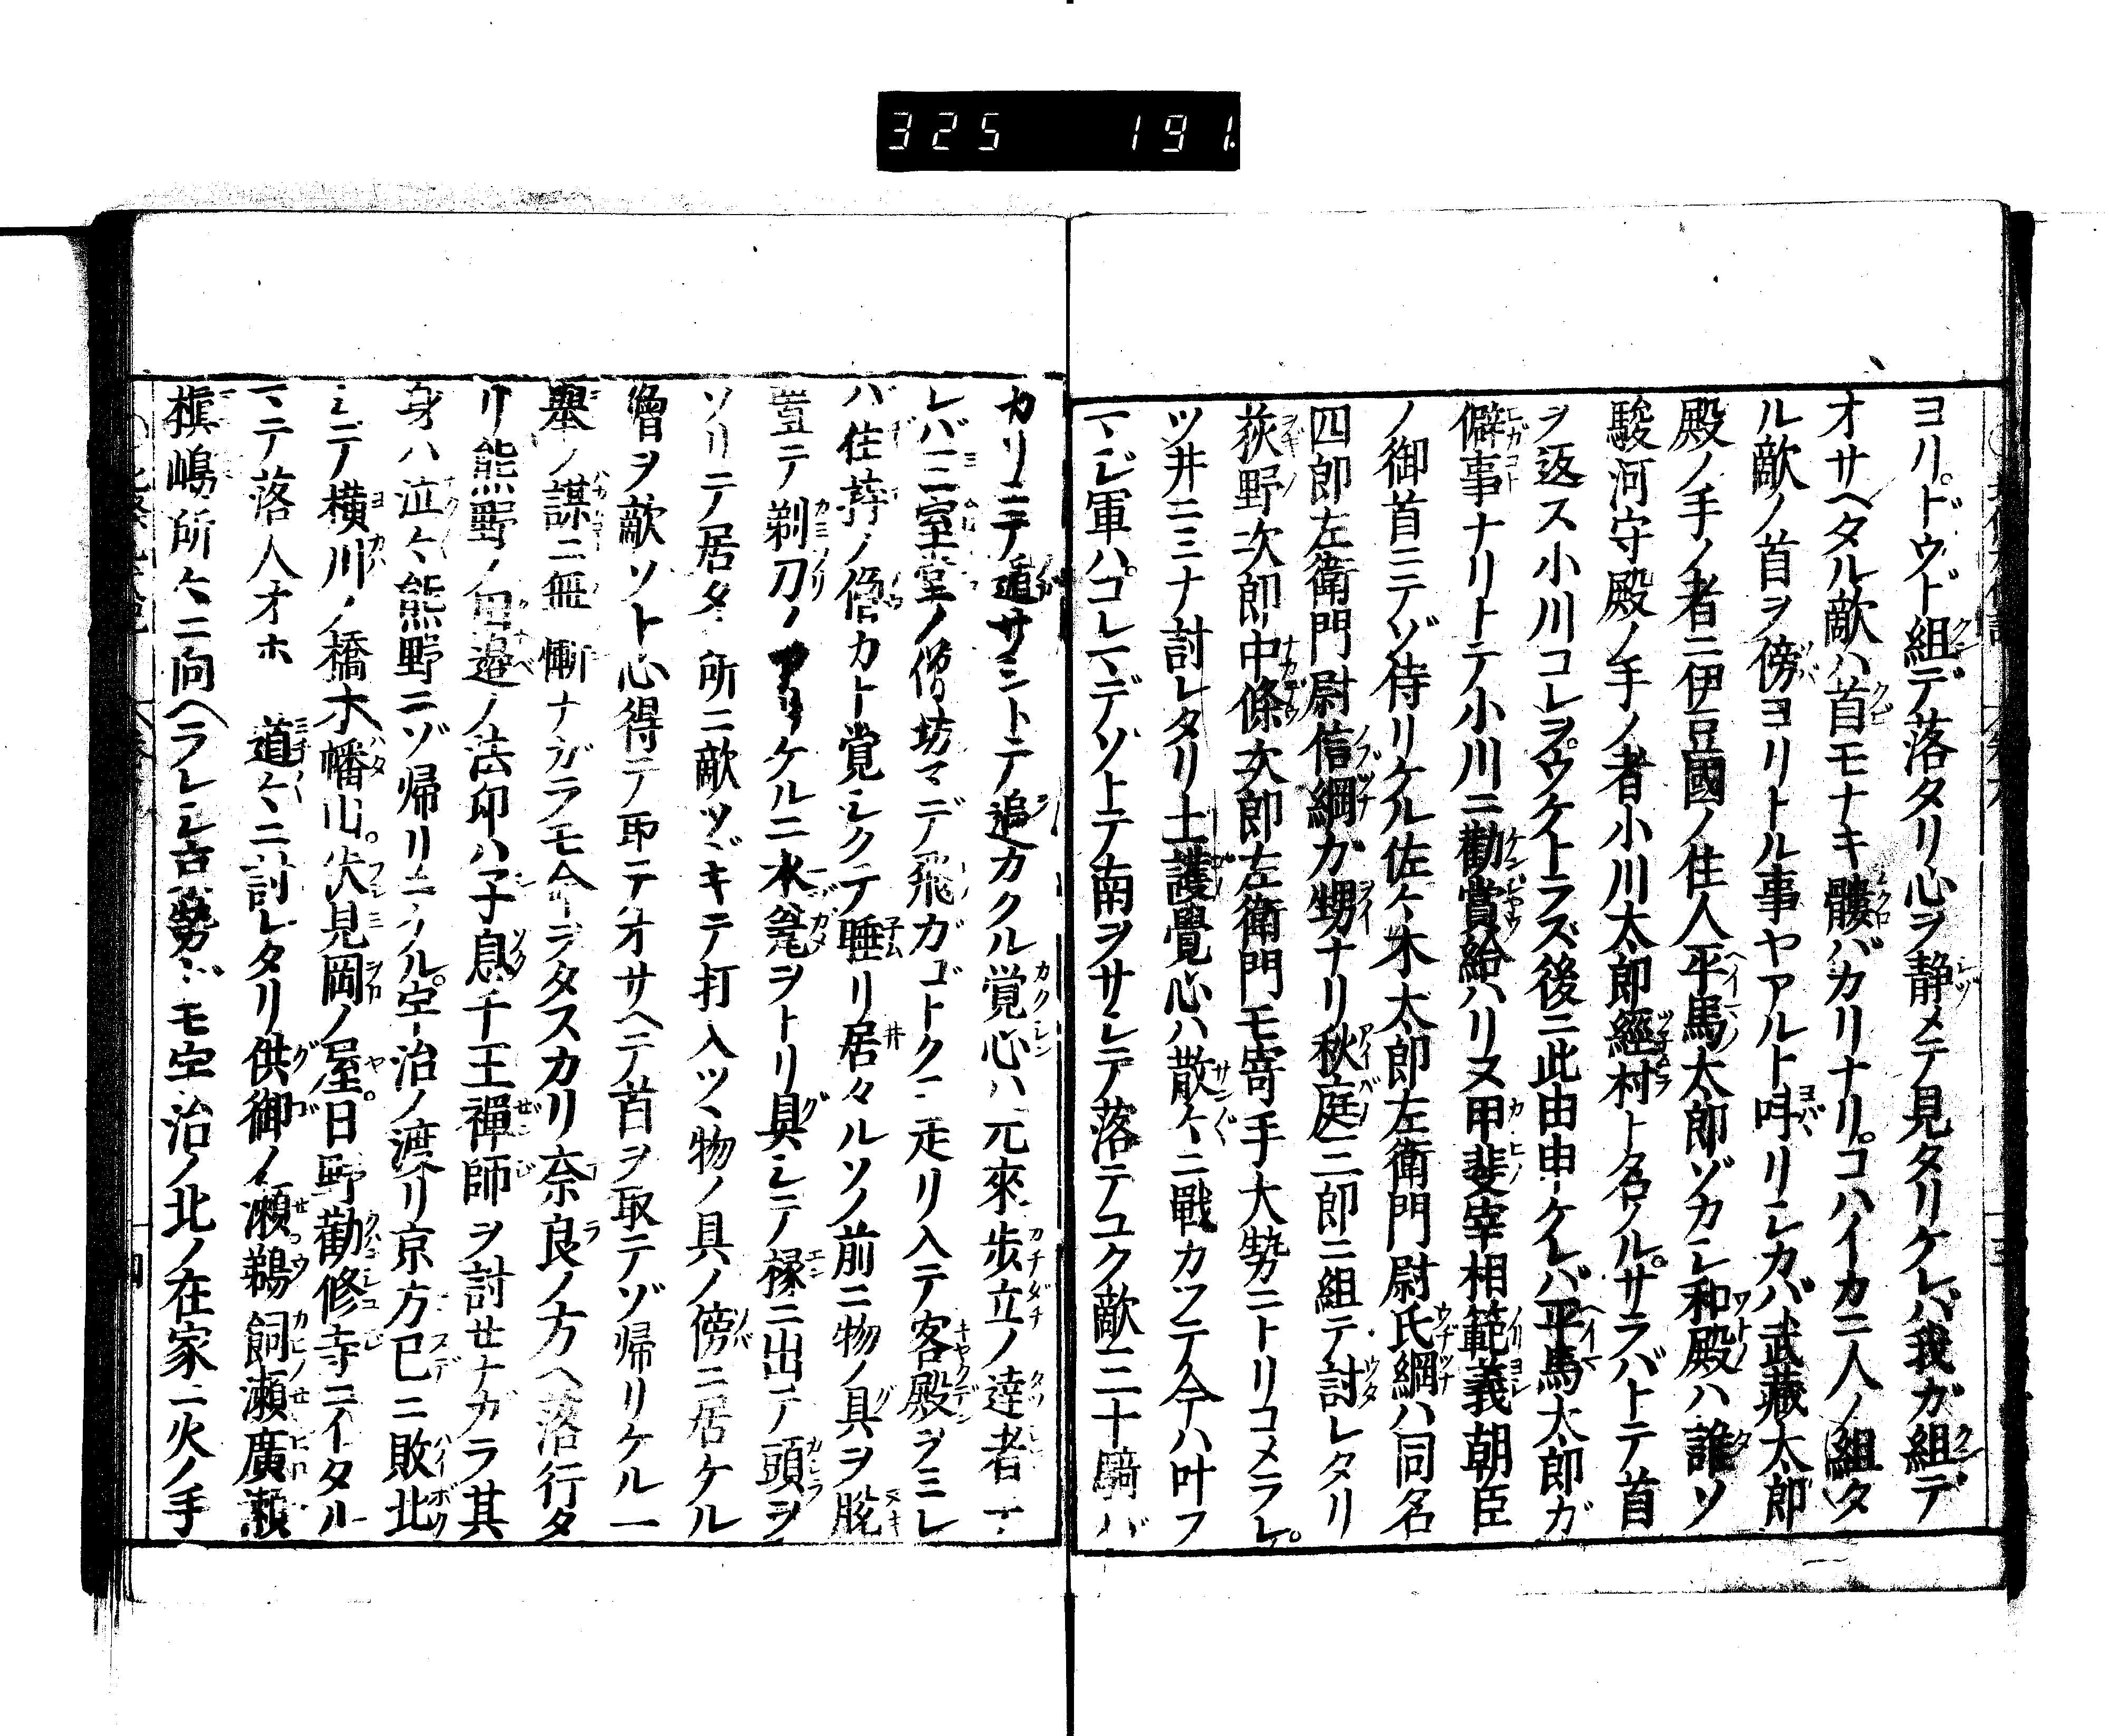 325 191.
ヨリ。ドウド組デ落タリ心ヲ静メテ見タリケレバ我ガ組デ
オサヘタル敵ハ首モナキ髏バカリナリ。コハイカニ人ノ組タ
ル敵ノ首ヲ傍ヨリトル事ヤアルト呼リシカバ武藏太郎
殿ノ手ノ者ニ伊豆國ノ住人平馬太郎ゾカシ和殿ハ誰ソ
駿河守殿ノ手ノ者小川太郎經村ト名ノル。サラバトテ首
ヲ返ス小川コレヲウケトラズ後ニ此由申ケレバ平馬太郎ガ
僻事ナリトテ小川ニ勸賞給ハリヌ甲斐宰相範義朝臣
ノ御首ニテゾ侍リケル佐々木太郎左衛門尉氏綱ハ同名
四郎左衛門尉信綱カ甥ナリ秋庭三郎ニ組テ討レタリ
荻野次郎中條次郎左衛門モ寄手大勢ニトリコメラレ。
ツ井ニミナ討レタリ土護覺心ハ散々ニ戰カフテ今ハ叶フ
マシ軍ハコレマデゾトテ南ヲサシテ落テユク敵三十騎バ
カリニテ遁サシトテ追カクル覚心ハ元來歩立ノ達者ナ
レバ三室堂ノ僧坊マデ飛ガゴトクニ走リ入テ客殿ヲミレ
バ住持ノ僧カト覚シクテ睡リ居タルソノ前ニ物ノ具ヲ脱
置テ剃刀ノアリケルニ水瓫ヲトリ具シテ縁ニ出テ頭ヲ
ソリテ居タ所ニ敵ツヾキテ打入ツヽ物ノ具ノ傍ニ居ケル
僧ヲ敵ソト心得テ取テオサヘテ首ヲ取テゾ帰リケル一
舉ノ謀ニ無慚ナガラモ命ヲタスカリ奈良ノ方ヘ落行タ
リ熊野ノ田邊ノ法印ハ子息千王禪師ヲ討せナガラ其
身ハ泣々熊野ニゾ帰リニケル。宇治ノ渡リ京方已ニ敗北
シテ横川ノ橋木幡山。伏見岡ノ屋。日野勸修寺ニイタル
マテ落人オホ 道々ニ討レタリ供御ノ瀬鵜飼瀬廣瀬
槇嶋所々ニ向ヘラレシ官勢ドモ宇治ノ北ノ在家ニ火ノ手